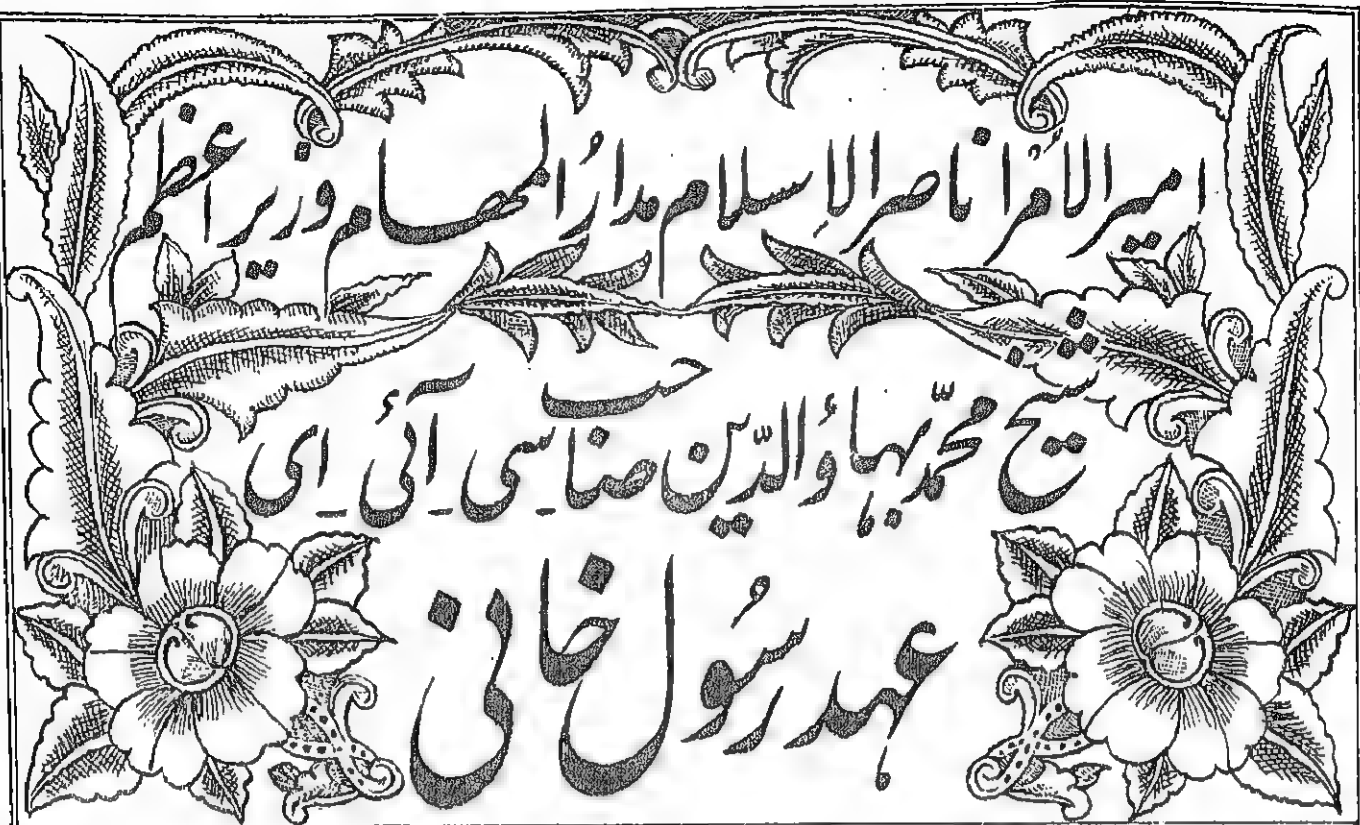 امیر الاُمرا ناصر الاِسلام مدارُ المہام وزیر اعظم
شیخ محمّد بہاؤ الدّین صاحب سی۔ آئی۔ ای
عہد رسُول خانی